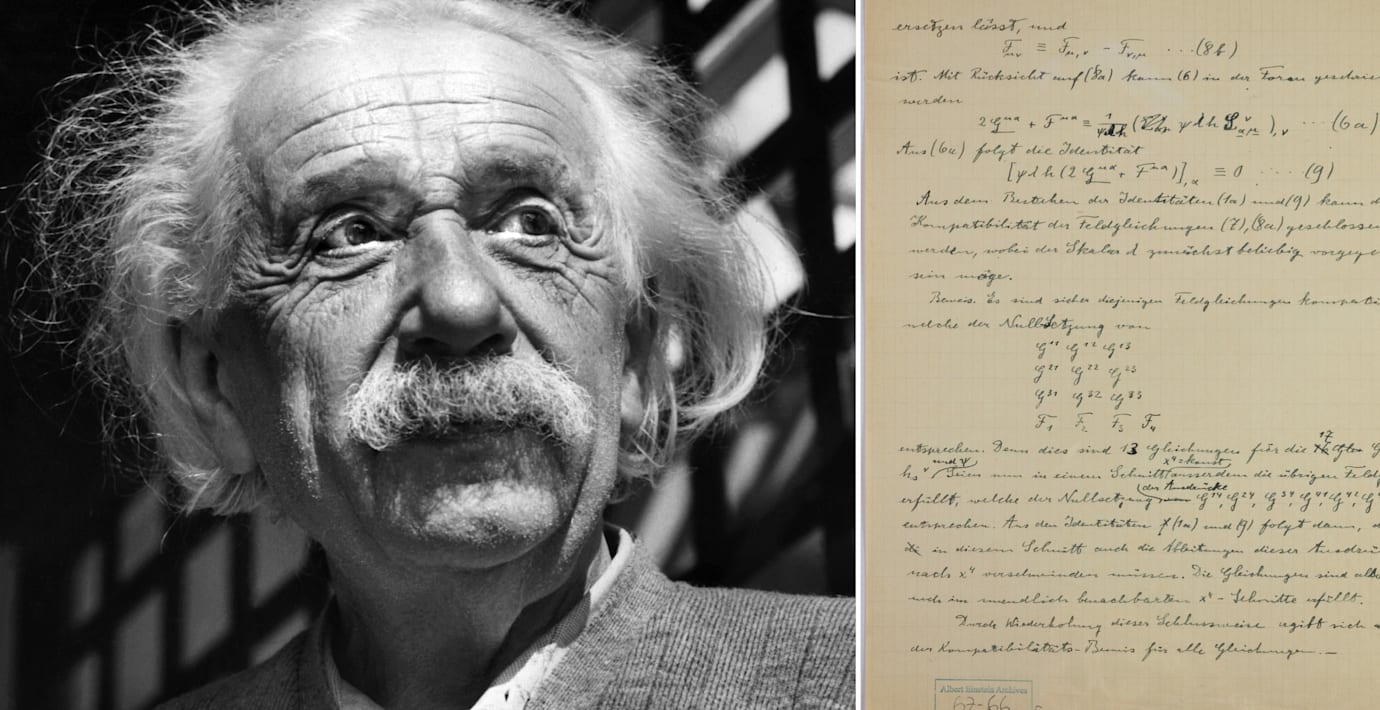 ersetzen lässt, und
F_μν ≡ F_μ,ν - F_ν,μ ... (8b)
ist. Mit Rücksicht auf (8a) kann (6) in der Form
werden
2 G^μα + F^μα ≡ 1/ψλh ( ψλh S^ν_αμ ),ν ... (6a)
Aus (6a) folgt die Identität
[ψλh (2 G^μα + F^μα)],α ≡ 0 .... (9)
Aus dem Bestehen der Identitäten (1a) und (9) kann d
Kompatibilität der Feldgleichungen (7), (8a) geschlossen
werden, wobei der Skalar λ zunächst beliebig
sein möge.
Beweis. Es sind sicher diejenigen Feldgleichungen
welche der Nullsetzung von
G^11 G^12 G^13
G^21 G^22 G^23
G^31 G^32 G^33
F_1 F_2 F_3 F_4
entsprechen. Denn dies sind 13 Gleichungen für die 17
h_s^ν und ψ Seien nun in einem Schnitt x^4 = konst ausserdem die übrigen
erfüllt, welche der Nullsetzung der Ausdrücke G^14, G^24, G^34, G^41, G^42, G
entsprechen. Aus den Identitäten (1a) und (9) folgt dann, d
in diesem Schnitt auch die Ableitungen dieser
nach x^4 verschwinden müssen. Die Gleichungen sind
auch im unendlich benachbarten x^4-Schnitte erfüllt.
Durch Wiederholung dieser Schlussweise ergibt sich
der Kompatibilitäts-Beweis für alle Gleichungen. —
Albert Einstein Archives
62-66